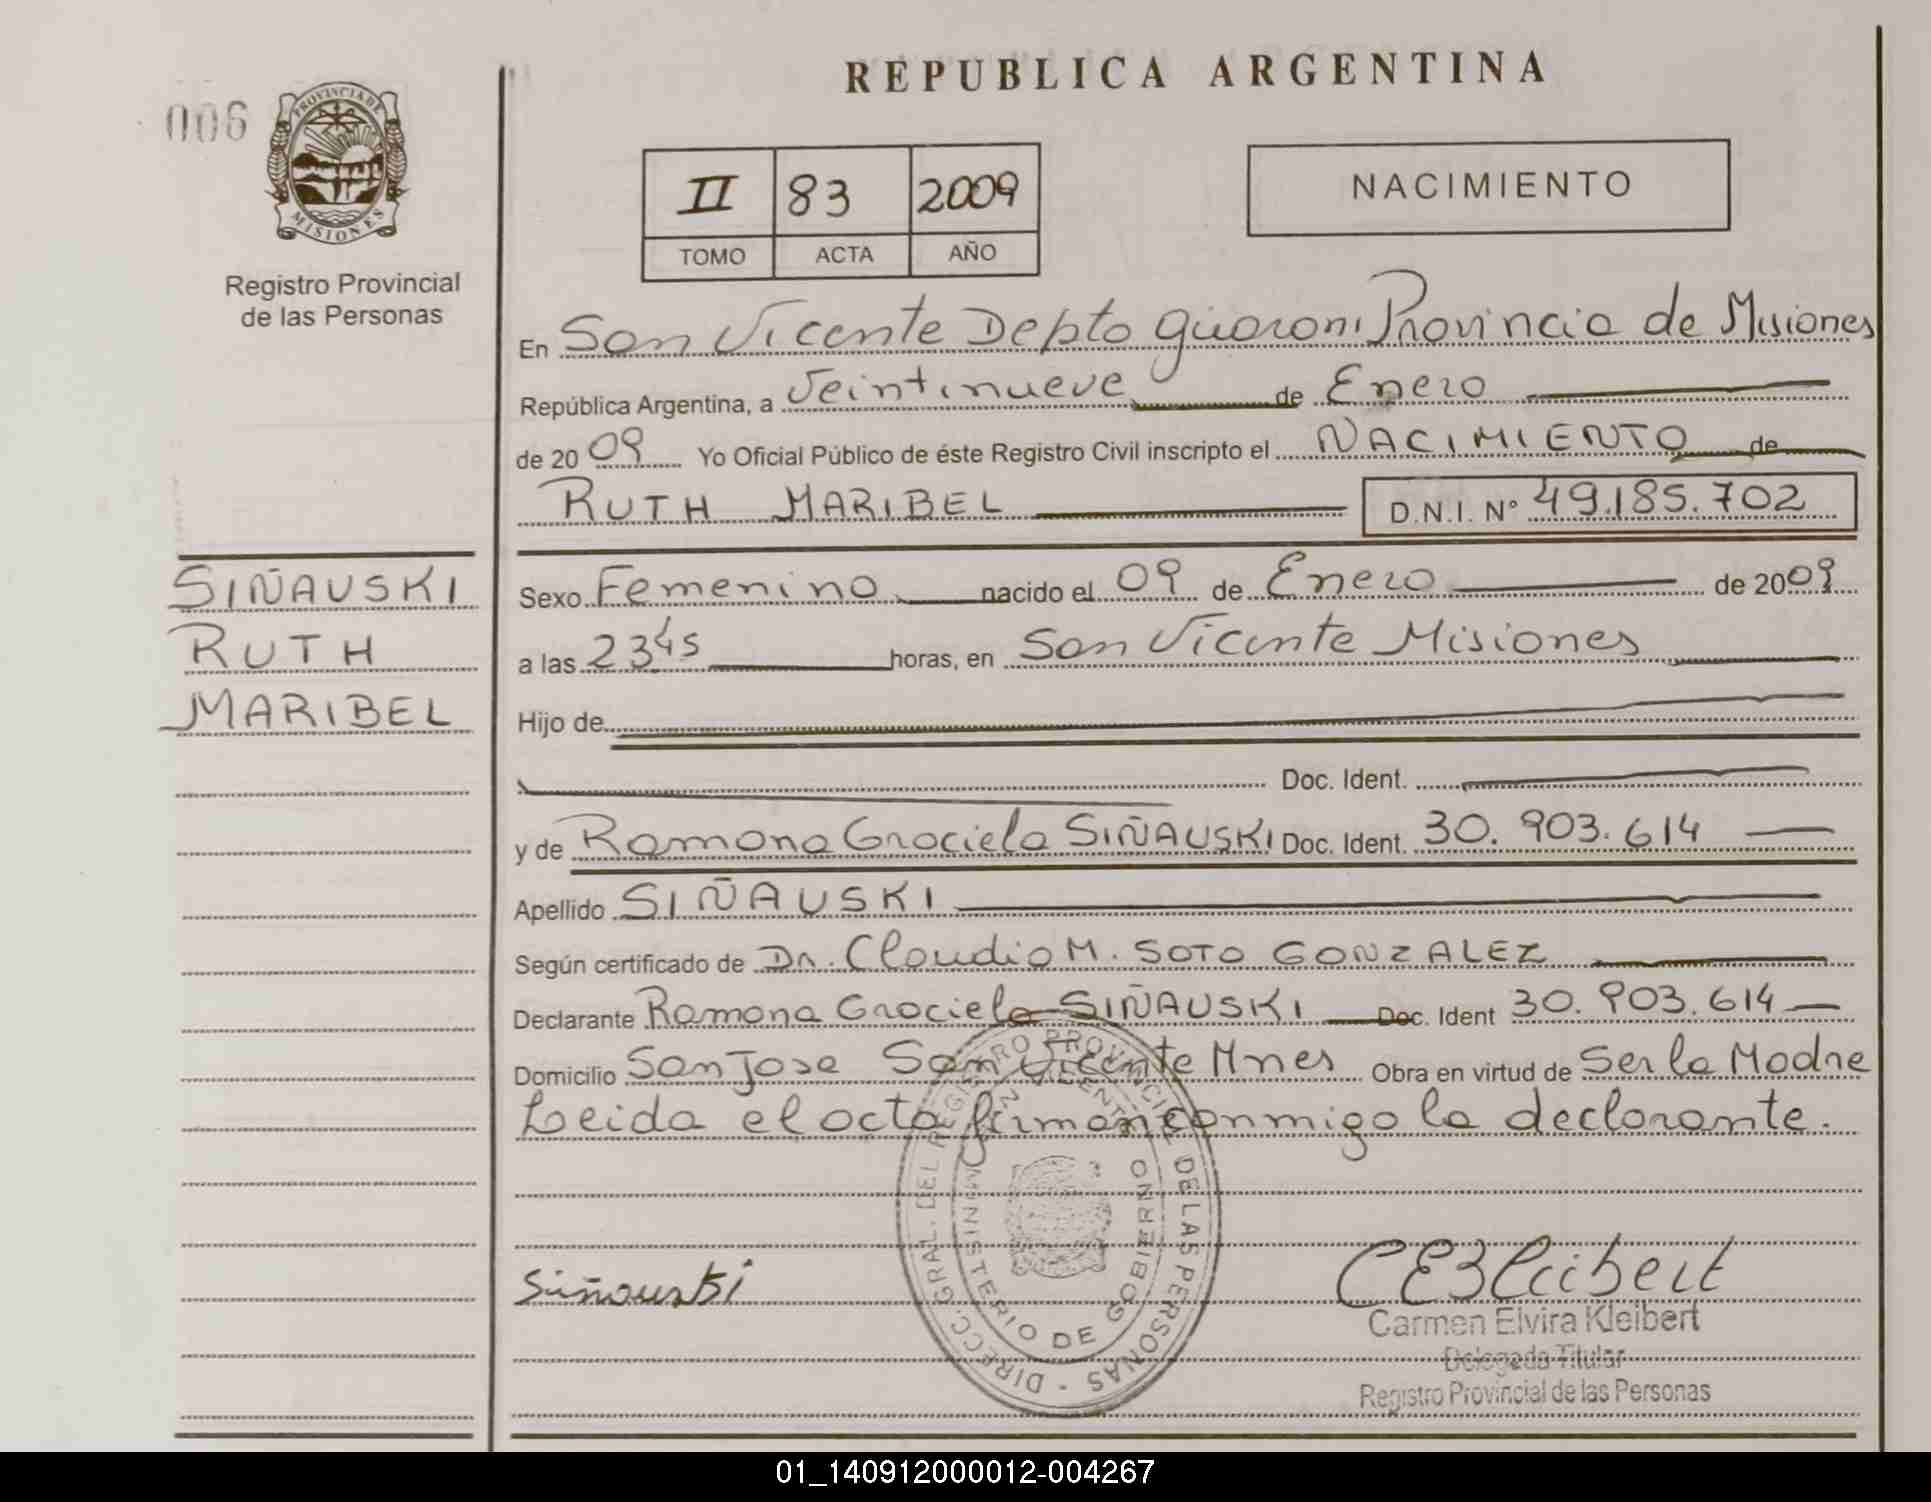 REPUBLICA ARGENTINA
006
PROVINCIA DE
MISIONES
Registro Provincial
de las Personas
II 83 2009
TOMO ACTA AÑO
NACIMIENTO
En San Vicente Depto Guarani Provincia de Misiones
República Argentina, a Veintinueve de Enero
de 2009 Yo Oficial Público de éste Registro Civil inscripto el NACIMIENTO de
RUTH MARIBEL D.N.I. Nº 49.185.702
SIÑAUSKI
RUTH
MARIBEL
Sexo Femenino nacido el 09 de Enero de 2009
a las 2345 horas, en San Vicente Misiones
Hijo de
Doc. Ident.
y de Ramona Graciela SIÑAUSKI Doc. Ident. 30.903.614
Apellido SIÑAUSKI
Según certificado de Dr. Claudio M. SOTO GONZALEZ
Declarante Ramona Graciela SIÑAUSKI Doc. Ident 30.903.614
Domicilio San Jose San Vicente Mnes Obra en virtud de Ser la Madre
Leida el acta firman conmigo la declarante.
DIRECC. GRAL. DEL REGISTRO PROVINCIAL DE LAS PERSONAS -
MINISTERIO DE GOBIERNO
SAN VICENTE
Siñauski
CEKleibert
Carmen Elvira Kleibert
Delegada Titular
Registro Provincial de las Personas
01_140912000012-004267